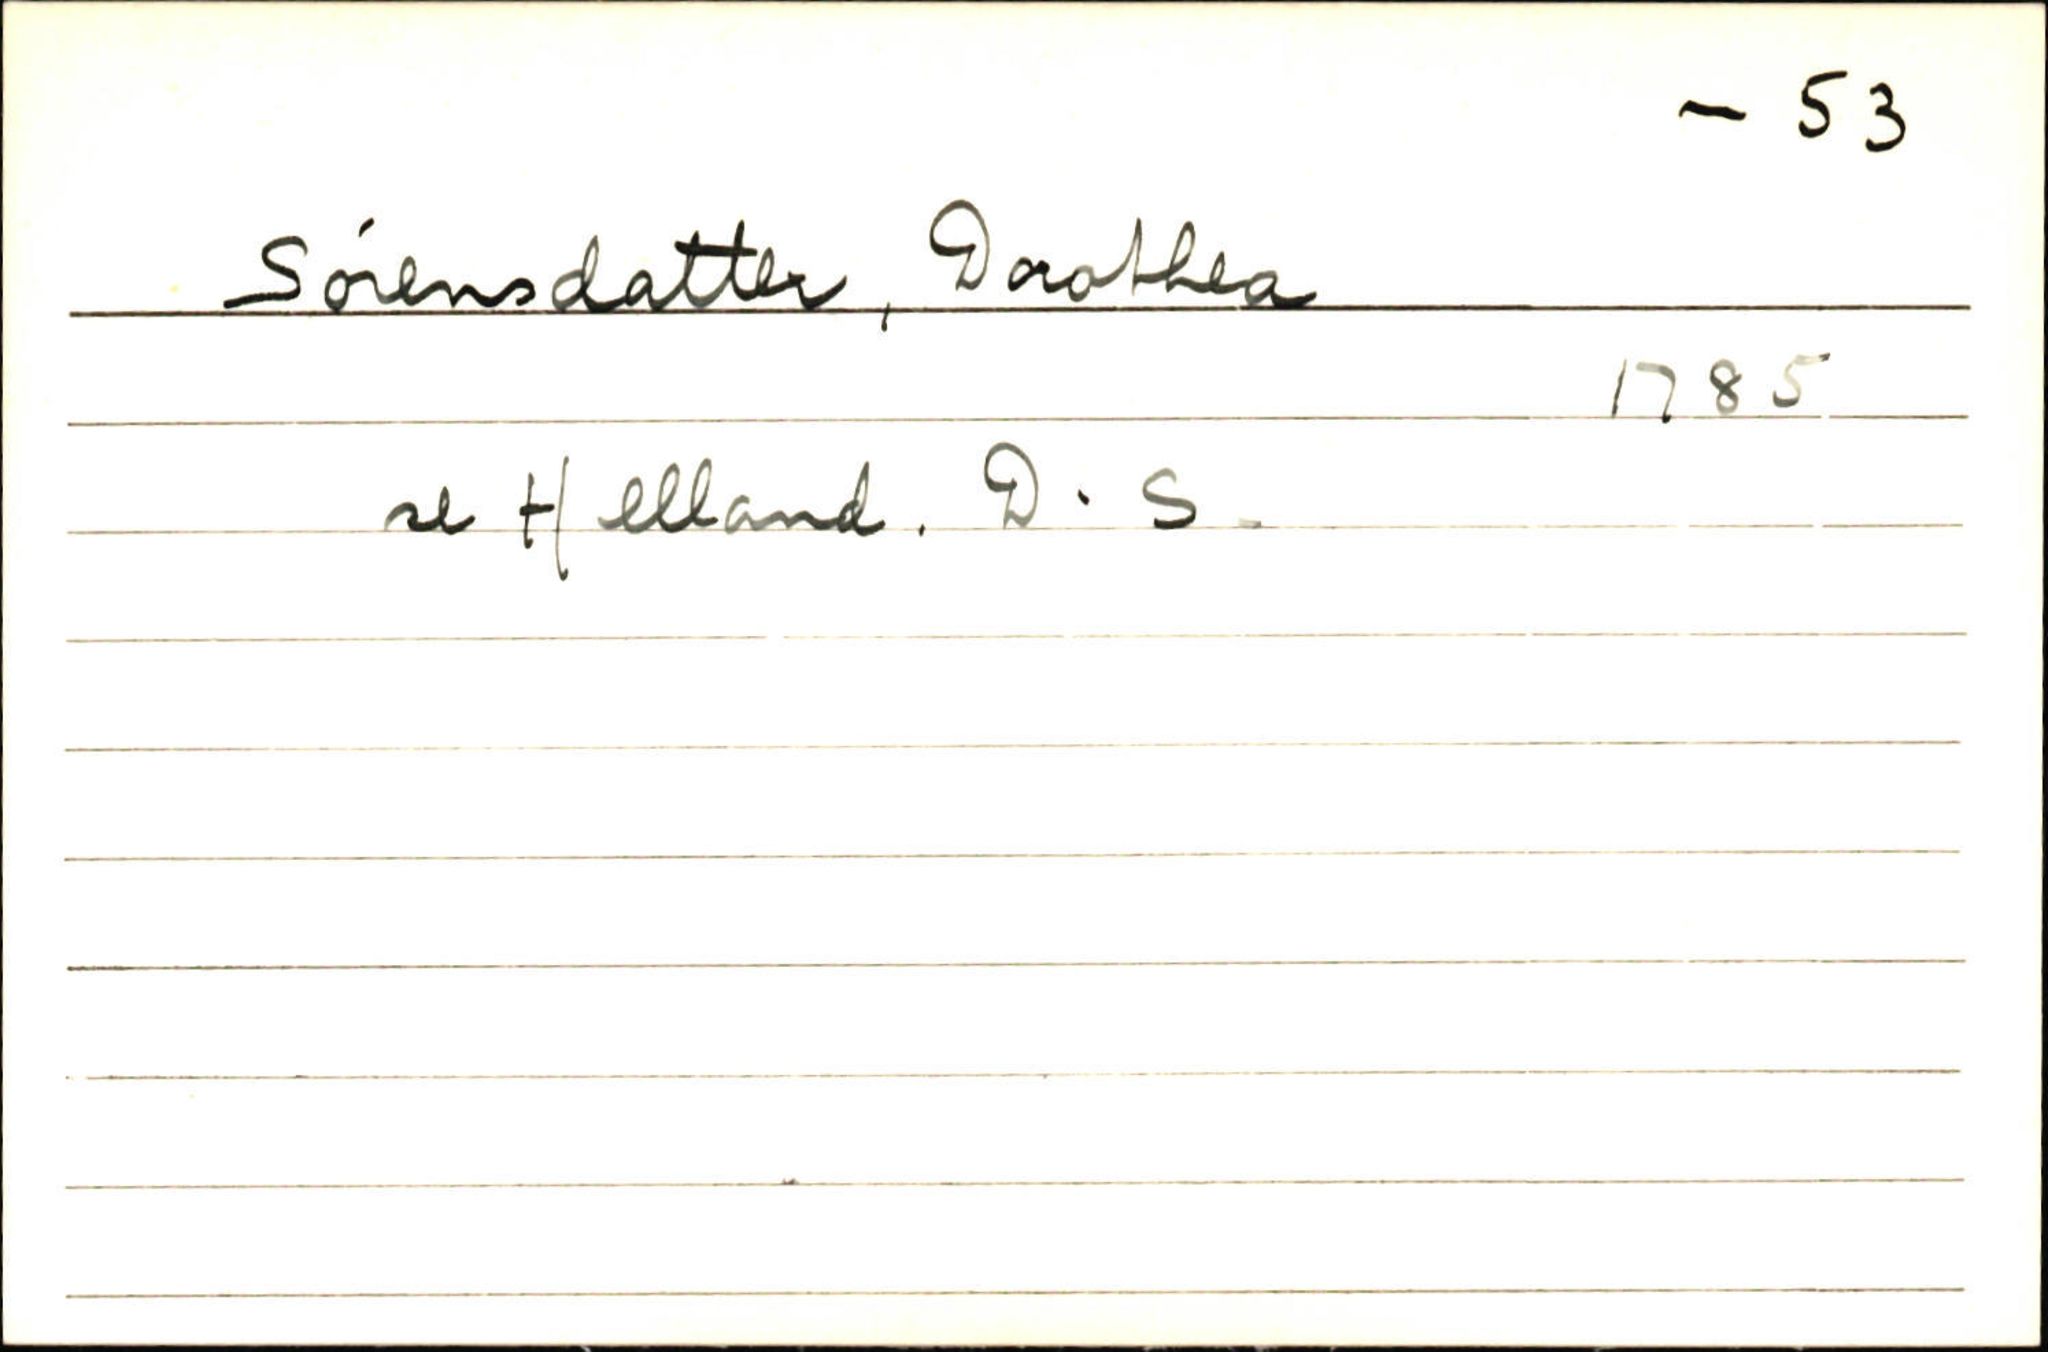 - 53
Sørensdatter, Dorothea
1785
se Helland. D. S.